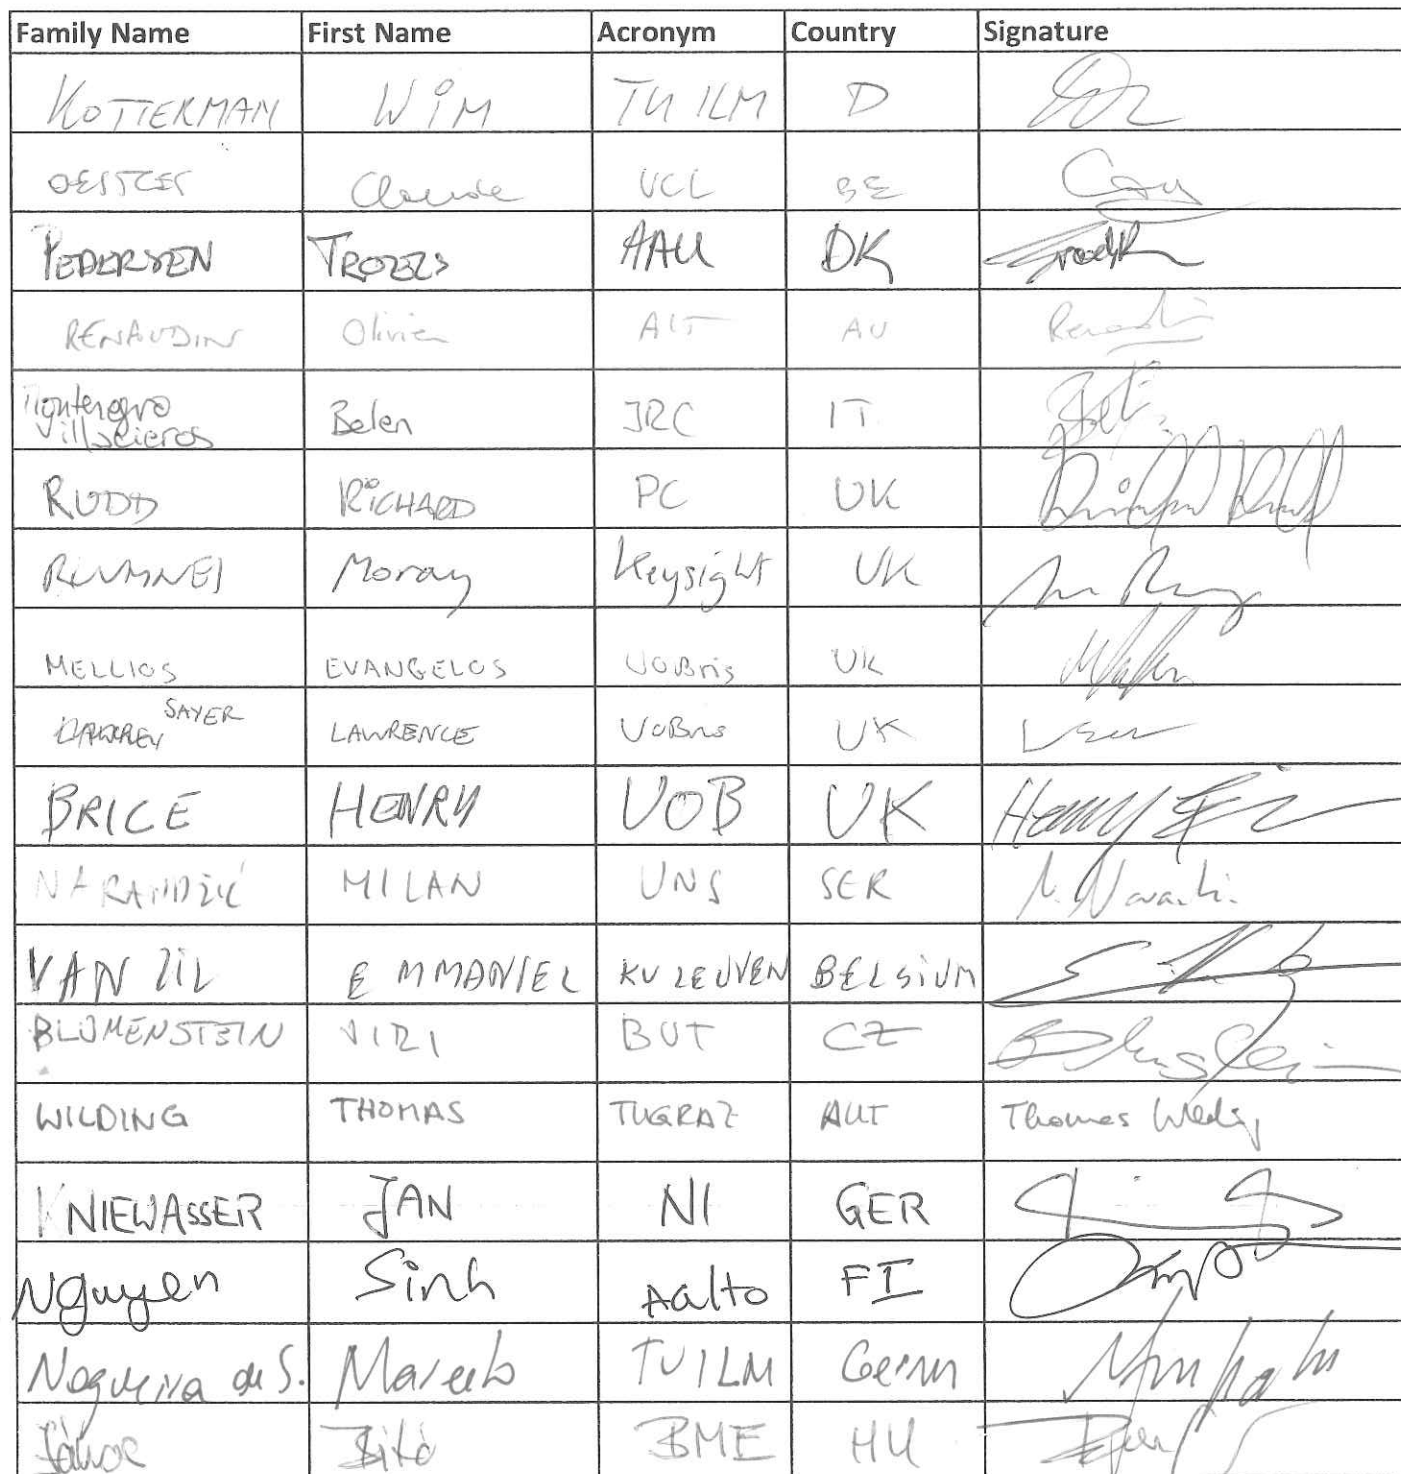 Family Name First Name Acronym Country Signature
KOTTERMAN WiM TU ILM D
OESTGES Claude UCL BE
PEDERSEN TROELS AAU DK
RENAUDIN Olivier AIT AU
Montenegro
Villacieros Belen JRC IT
RUDD RICHARD PC UK
RUMNEY Moray Keysight UK
MELLIOS EVANGELOS UOBris UK
SAYER LAWRENCE UoBris UK
BRICE HENRY UOB UK Henry
NARANDZIC MILAN UNS SER
VAN ZIL EMMANUEL KU LEUVEN BELGIUM
BLUMENSTEIN JIRI BUT CZ
WILDING THOMAS TUGRAZ AUT Thomas Wilding
KNIEWASSER JAN NI GER
Nguyen Sinh Aalto FI
Nogueira de S. Marcelo TU ILM Germ
János Bitó BME HU